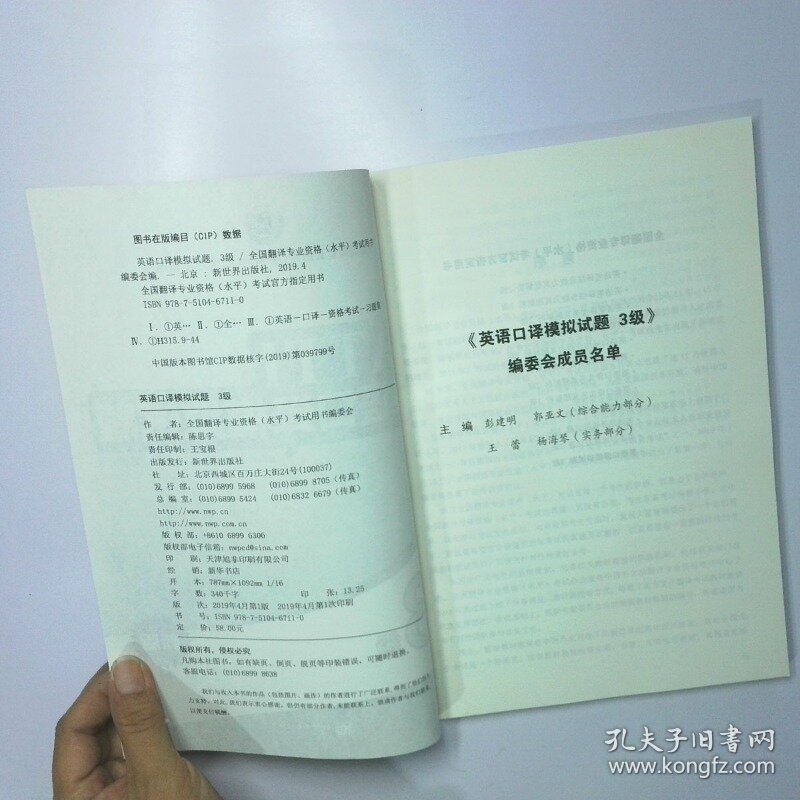 图书在版编目(CIP)数据
英语口译模拟试题. 3级 / 全国翻译专业资格(水平)考试用书
编委会编. — 北京 : 新世界出版社, 2019.4
全国翻译专业资格(水平)考试官方指定用书
ISBN 978-7-5104-6711-0
Ⅰ.①英… Ⅱ.①全… Ⅲ.①英语－口译－资格考试－习题集
Ⅳ.①H315.9-44
中国版本图书馆CIP数据核字(2019)第039799号
英语口译模拟试题 3级
作 者:全国翻译专业资格(水平)考试用书编委会
责任编辑:陈思宇
责任印制:王宝根
出版发行:新世界出版社
社 址:北京西城区百万庄大街24号(100037)
发 行 部:(010)6899 5968 (010)6899 8705(传真)
总 编 室:(010)6899 5424 (010)6832 6679(传真)
http://www.nwp.cn
http://www.nwp.com.cn
版 权 部:+8610 6899 6306
版权部电子信箱:nwpcd@sina.com
印 刷:天津旭非印刷有限公司
经 销:新华书店
开 本:787mm×1092mm 1/16
字 数:340千字 印 张:13.25
版 次:2019年4月第1版 2019年4月第1次印刷
书 号:ISBN 978-7-5104-6711-0
定 价:58.00元
版权所有,侵权必究
凡购本社图书,如有缺页、倒页、脱页等印装错误,可随时退换。
客服电话:(010)6899 8638
我们与收入本书的作品(包括图片、画作)的作者进行了广泛联系,得到了他们的
力支持。对此,我们表示衷心感谢。但仍有部分作者,未能联系上,烦请作者与我们联系,
以便支付稿酬。
《英语口译模拟试题 3级》
编委会成员名单
主 编 彭建明 郭亚文(综合能力部分)
王 蕾 杨海琴(实务部分)
孔夫子旧书网
www.kongfz.com